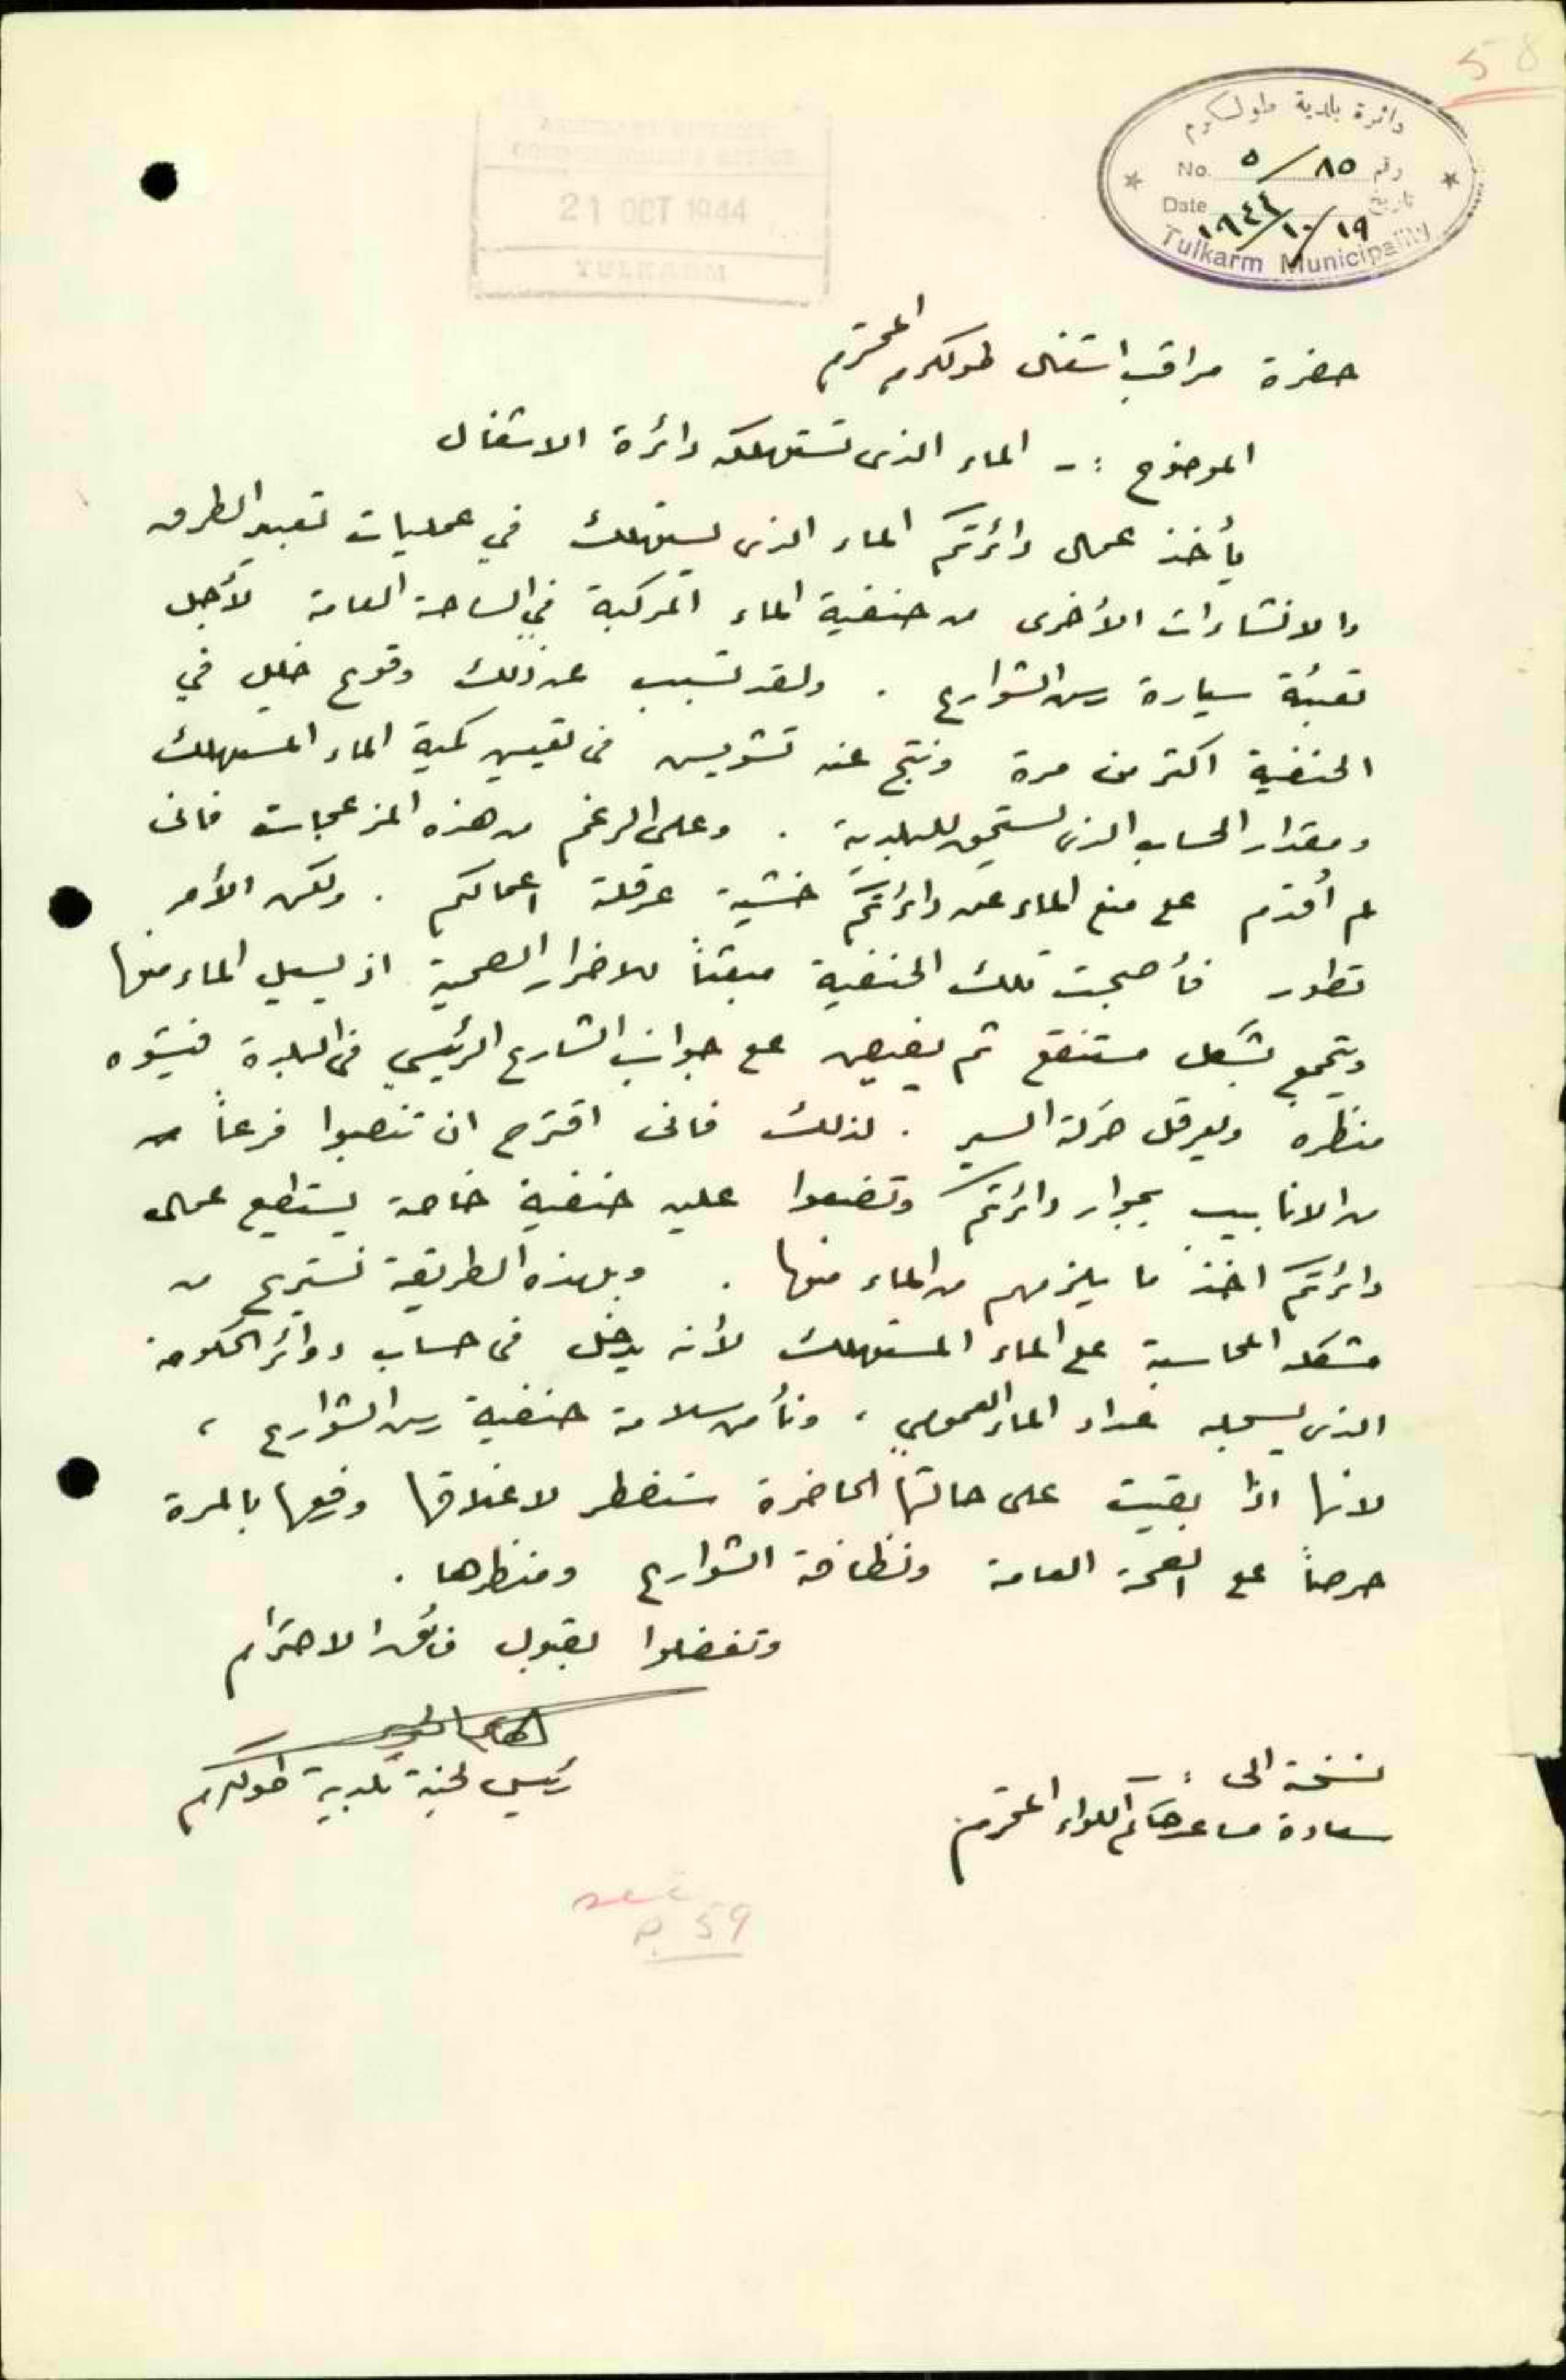 58
دائرة بلدية طولكرم
No. ٥/٨٥ رقم
Date ١٩٤٤/١٠/١٩ تاريخ
Tulkarm Municipality
21 OCT 1944
TULKARM
حضرة مراقب اشغال طولكرم المحترم
الموضوع :- الماء الذي تستهلكه دائرة الاشغال
يأخذ عمال دائرتكم الماء الذي يستهلك في عمليات تعبيد الطرق
والانشاءات الأخرى من حنفية الماء المركبة في الساحة العامة لأجل
تعبئة سيارة رش الشوارع . ولقد تسبب عن ذلك وقوع خلل في
الحنفية اكثر من مرة ونتج عنه تشويش في تعيين كمية الماء المستهلك
ومقدار الحساب الذي تستحق للبلدية . وعلى الرغم من هذه المزعجات فاني
لم أقدم على منع الماء عن دائرتكم خشية عرقلة اعمالكم . ولكن الأمر
تطور فأصبحت تلك الحنفية مبعثاً للاضرار الصحية اذ يسيل الماء منها
ويتجمع بشكل مستنقع ثم يفيض على جوانب الشارع الرئيسي في البلدة فيشوه
منظره ويعرقل حركة السير . لذلك فاني اقترح ان تنصبوا فرعاً
من الانابيب بجوار دائرتكم وتضعوا عليه حنفية خاصة يستطيع عمال
دائرتكم اخذ ما يلزمهم من الماء منها . وبهذه الطريقة نستريح من
مشكلة المحاسبة على الماء المستهلك لأنه يدخل في حساب دوائر الحكومة
الذي يسجله عداد الماء العمومي ، ونأمن سلامة حنفية رش الشوارع ،
لانها اذا بقيت على حالتها الحاضرة سنضطر لاغلاقها ورفعها بالمرة
حرصاً على الصحة العامة ونظافة الشوارع ومنظرها .
وتفضلوا بقبول فائق الاحترام
رئيس لجنة بلدية طولكرم
نسخة الى :-
سعادة مساعد حاكم اللواء المحترم
see
P. 59